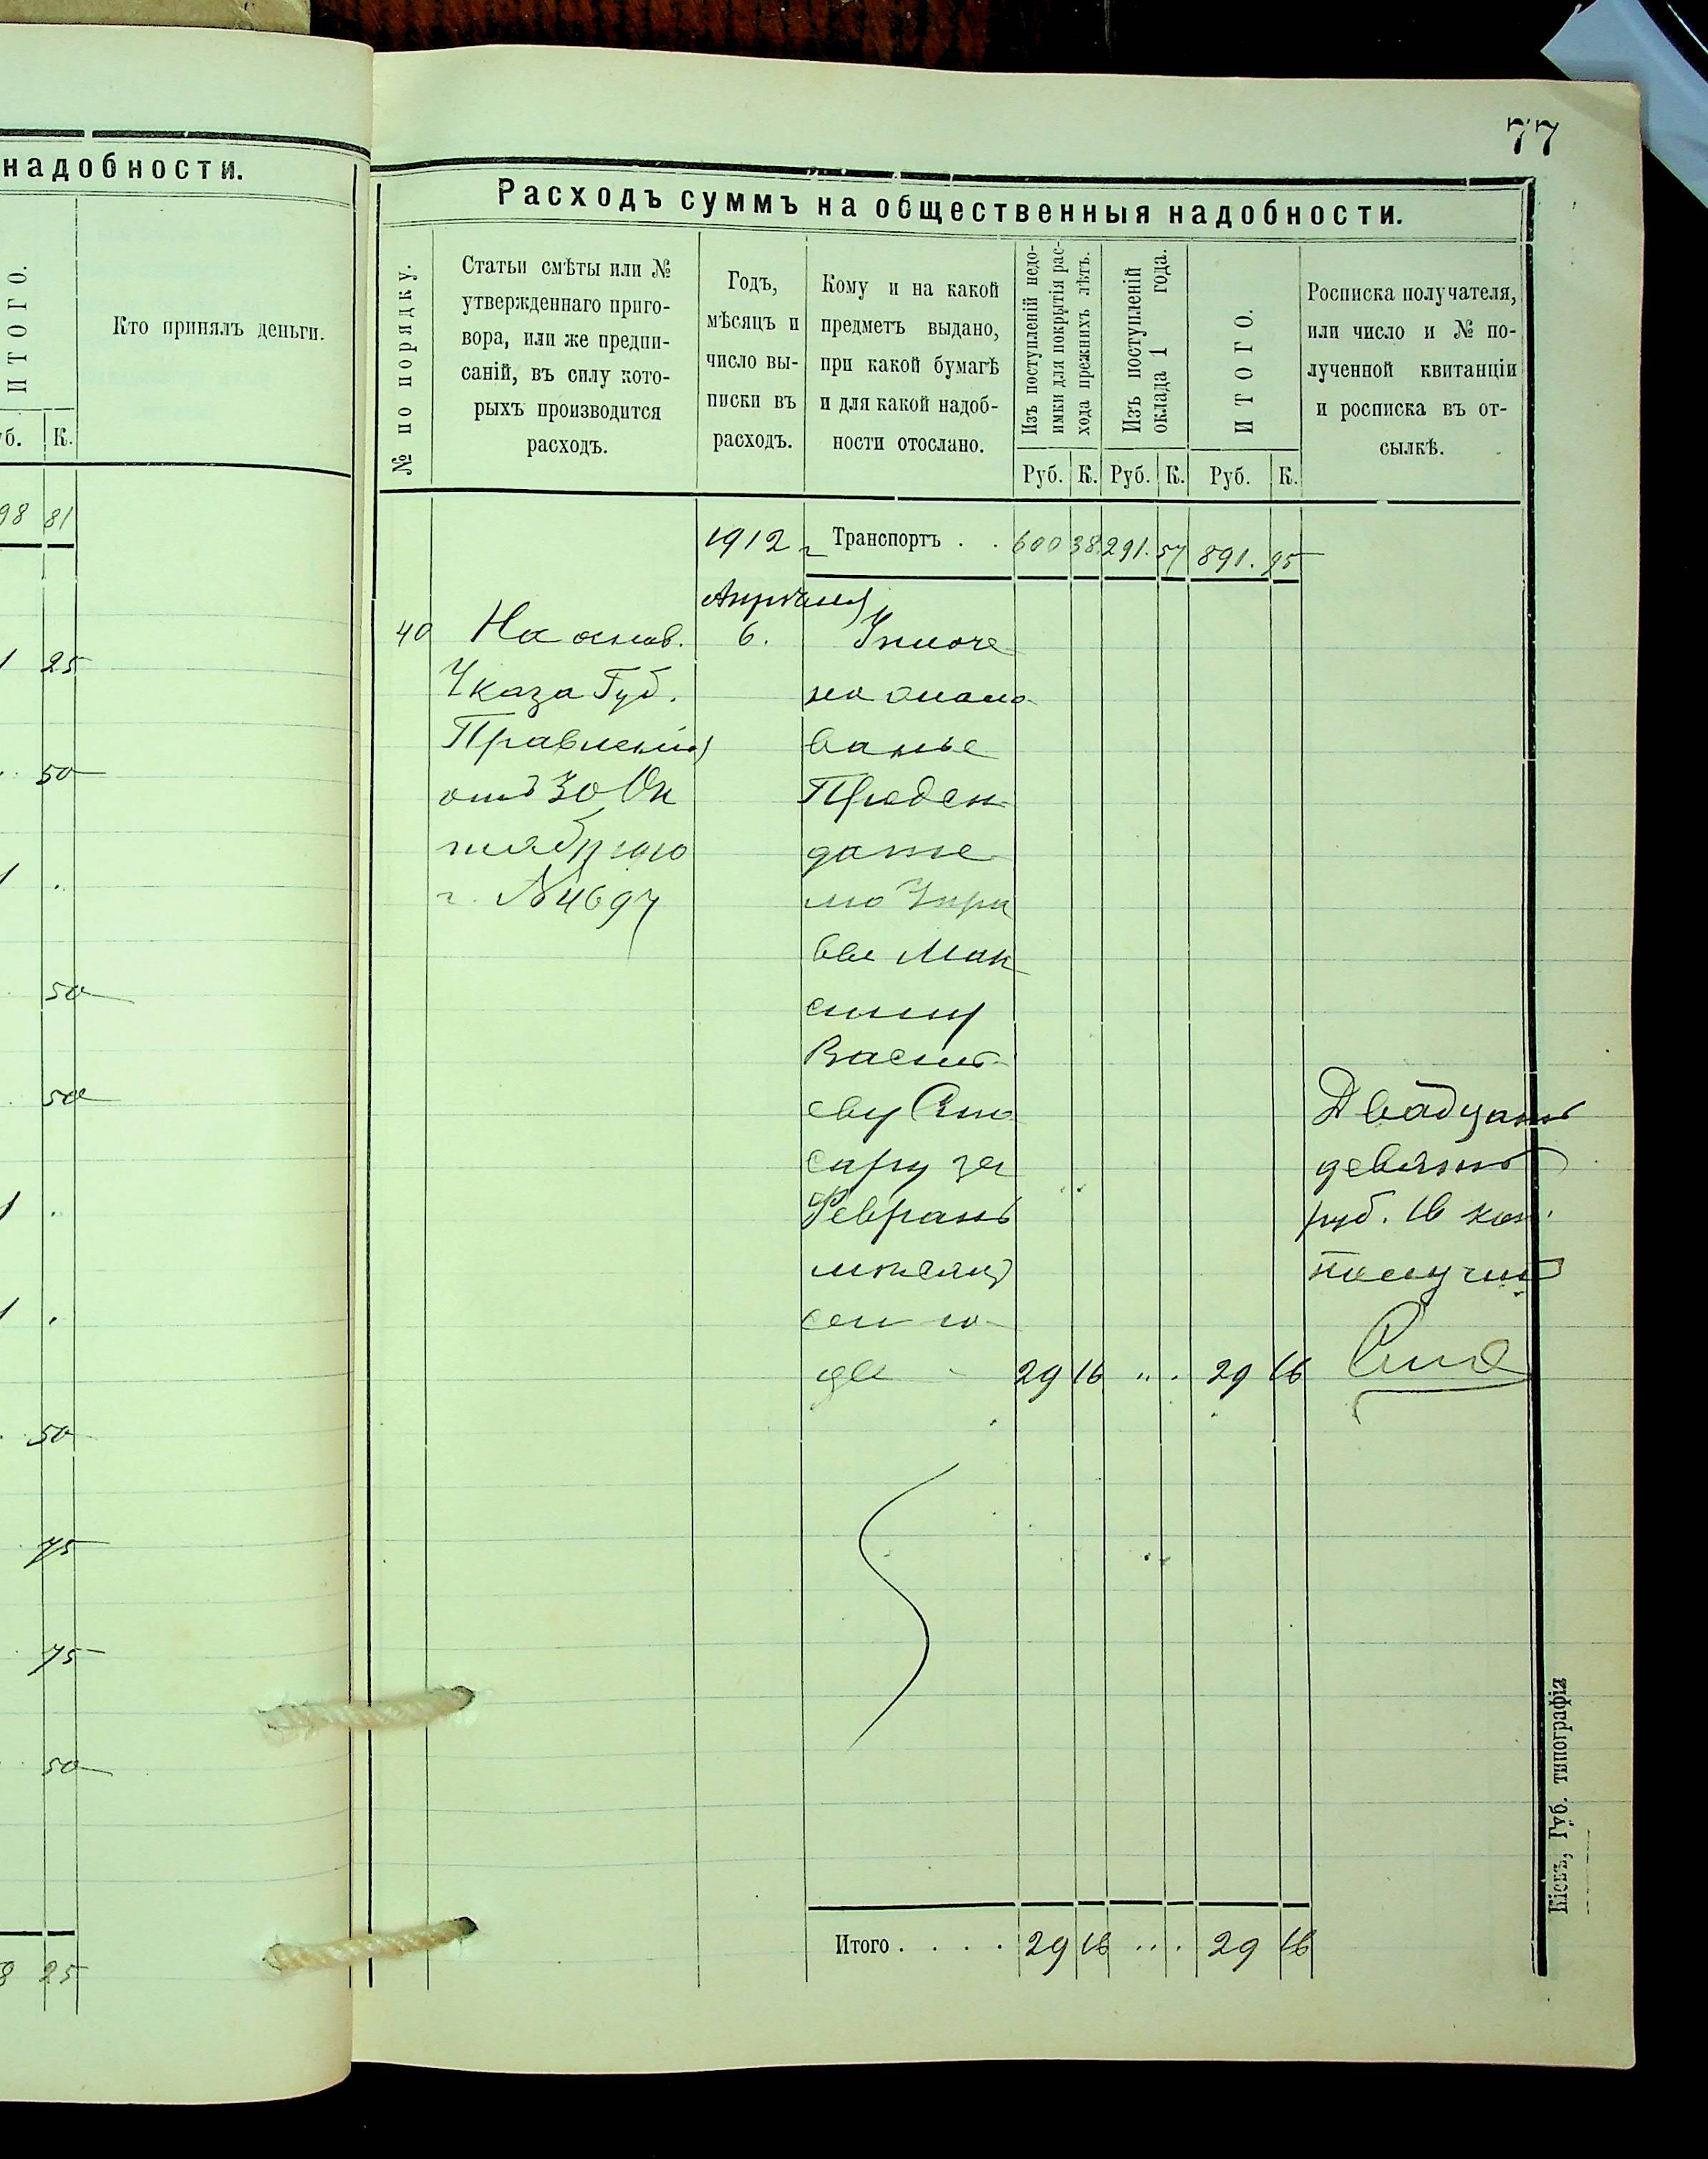 надобности.
ИТОГО.
Кто принялъ деньги.
б. К.
98 81
25
50
50
50
50
75
75
50
8 25
77
Расходъ суммъ на общественныя надобности.
№ по порядку.
Статьи смѣты или №
утвержденнаго приго-
вора, или же предпи-
саній, въ силу кото-
рыхъ производится
расходъ.
Годъ,
мѣсяцъ и
число вы-
писки въ
расходъ.
Кому и на какой
предметъ выдано,
при какой бумагѣ
и для какой надоб-
ности отослано.
Изъ поступленій недо-
имки для покрытія рас-
хода прежнихъ лѣтъ.
Изъ поступленій
оклада 1 года.
ИТОГО.
Росписка получателя,
или число и № по-
лученной квитанціи
и росписка въ от-
сылкѣ.
Руб. К. Руб. К. Руб. К.
1912 г. Транспортъ . . 600 38 291. 57 891. 95
Апрѣля
40 На основ. 6.
Указа Губ.
Правленія
отъ 30 Ок
тября 1910
г. №4697
Уплоче
но жалова
ванье
вы Мак
симу
Василь
еву
сару за
Февраль
мѣсяцъ
сего го-
да 29 16 " . 29 16
Двадцать
девять
руб. 16 коп.
получилъ
Итого . . . . 29 16 . . . 29 16
Кіевъ, Губ. типографія